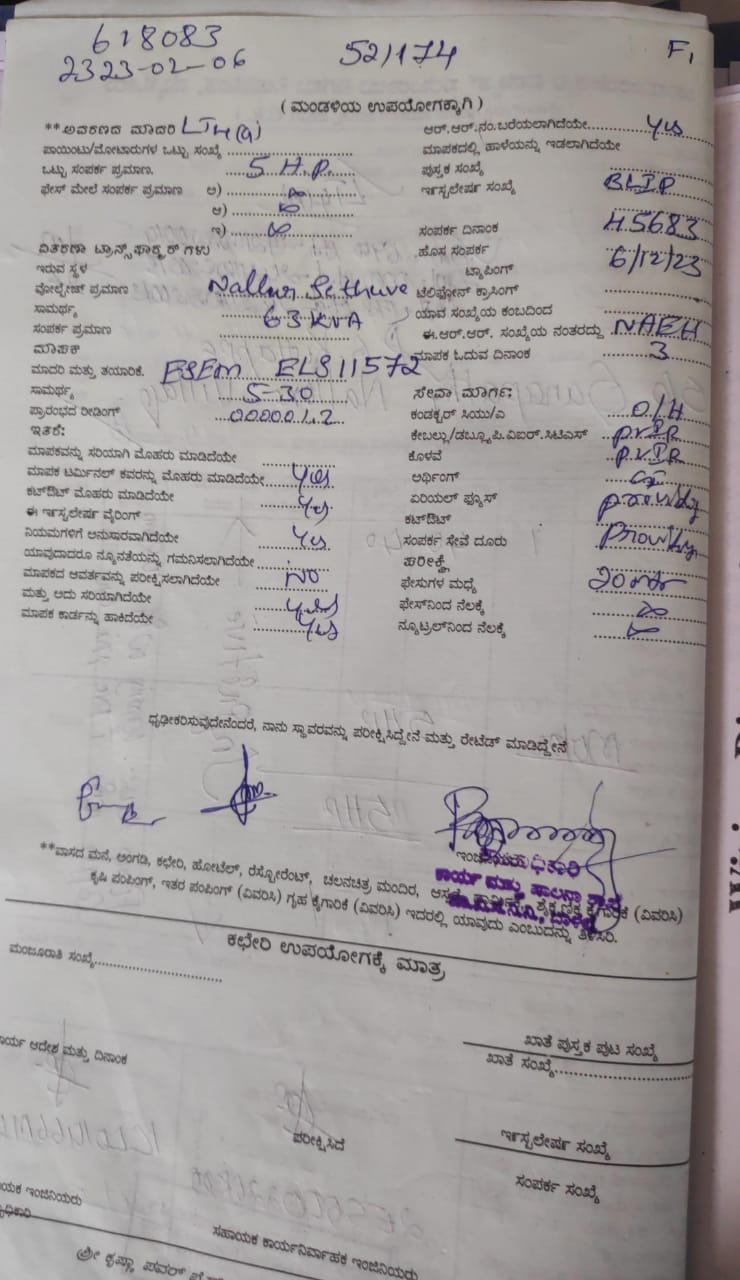 618083
2323-02-06
52/174
F1
( ಮಂಡಳಿಯ ಉಪಯೋಗಕ್ಕಾಗಿ )
**ಆವರಣದ ಮಾದರಿ LT4(a)
ಆರ್.ಆರ್.ನಂ.ಬರೆಯಲಾಗಿದೆಯೇ Yes
ಪಾಯಿಂಟು/ಮೋಟಾರುಗಳ ಒಟ್ಟು ಸಂಖ್ಯೆ
ಮಾಪಕದಲ್ಲಿ ಹಾಳೆಯನ್ನು ಇಡಲಾಗಿದೆಯೇ
ಒಟ್ಟು ಸಂಪರ್ಕ ಪ್ರಮಾಣ. 5 H.P.
ಪುಸ್ತಕ ಸಂಖ್ಯೆ
ಫೇಸ್ ಮೇಲೆ ಸಂಪರ್ಕ ಪ್ರಮಾಣ ಅ)
ಇನ್ಸ್ಟಲೇಷನ್ ಸಂಖ್ಯೆ BLIP
ಆ)
ಇ)
ಸಂಪರ್ಕ ದಿನಾಂಕ 45683
ವಿತರಣಾ ಟ್ರಾನ್ಸ್‌ಫಾರ್ಮರ್ ಗಳು
ಹೊಸ ಸಂಪರ್ಕ 6/12/23
ಇರುವ ಸ್ಥಳ
ಟ್ಯಾಪಿಂಗ್
ವೋಲ್ಟೇಜ್ ಪ್ರಮಾಣ Nallur Sethuve
ಟೆಲಿಫೋನ್ ಕ್ರಾಸಿಂಗ್
ಸಾಮರ್ಥ್ಯ 63 KVA
ಯಾವ ಸಂಖ್ಯೆಯ ಕಂಬದಿಂದ
ಸಂಪರ್ಕ ಪ್ರಮಾಣ
ಈ.ಆರ್.ಆರ್. ಸಂಖ್ಯೆಯ ನಂತರದ್ದು NAEH
ಮಾಪಕ
ಮಾಪಕ ಓದುವ ದಿನಾಂಕ 3
ಮಾದರಿ ಮತ್ತು ತಯಾರಿಕೆ. ESEM ELS11572
ಸಾಮರ್ಥ್ಯ 5-30
ಸೇವಾ ಮಾರ್ಗ:
ಪ್ರಾರಂಭದ ರೀಡಿಂಗ್ 00000.1.2
ಕಂಡಕ್ಟರ್ ಸಿಯು/ಎ O/H
ಇತರೆ:
ಕೇಬಲ್ಲು/ಡಬ್ಲ್ಯೂ.ಪಿ.ಐಆರ್.ಸಿಟಿಎಸ್ P.V.I.R
ಮಾಪಕವನ್ನು ಸರಿಯಾಗಿ ಮೊಹರು ಮಾಡಿದೆಯೇ
ಕೊಳವೆ P.V.I.R
ಮಾಪಕ ಟರ್ಮಿನಲ್ ಕವರನ್ನು ಮೊಹರು ಮಾಡಿದೆಯೇ Yes
ಅರ್ಥಿಂಗ್ GI
ಕಟ್‌ಔಟ್ ಮೊಹರು ಮಾಡಿದೆಯೇ Yes
ಏರಿಯಲ್ ಫ್ಯೂಸ್
ಈ ಇನ್ಸ್ಟಲೇಷನ್ ವೈರಿಂಗ್
ಕಟ್‌ಔಟ್
ನಿಯಮಗಳಿಗೆ ಅನುಸಾರವಾಗಿದೆಯೇ Yes
ಸಂಪರ್ಕ ಸೇವೆ ದೂರು
ಯಾವುದಾದರೂ ನ್ಯೂನತೆಯನ್ನು ಗಮನಿಸಲಾಗಿದೆಯೇ
ಪರೀಕ್ಷೆ
ಮಾಪಕದ ಆವರ್ತವನ್ನು ಪರೀಕ್ಷಿಸಲಾಗಿದೆಯೇ NO
ಫೇಸುಗಳ ಮಧ್ಯೆ
ಮತ್ತು ಅದು ಸರಿಯಾಗಿದೆಯೇ Yes
ಫೇಸ್‌ನಿಂದ ನೆಲಕ್ಕೆ
ಮಾಪಕ ಕಾರ್ಡನ್ನು ಹಾಕಿದೆಯೇ Yes
ನ್ಯೂಟ್ರಲ್‌ನಿಂದ ನೆಲಕ್ಕೆ
ಧೃಢೀಕರಿಸುವುದೇನೆಂದರೆ, ನಾನು ಸ್ಥಾವರವನ್ನು ಪರೀಕ್ಷಿಸಿದ್ದೇನೆ ಮತ್ತು ರೇಟೆಡ್ ಮಾಡಿದ್ದೇನೆ
**ವಾಸದ ಮನೆ, ಅಂಗಡಿ, ಕಛೇರಿ, ಹೋಟೆಲ್, ರೆಸ್ಟೋರೆಂಟ್, ಚಲನಚಿತ್ರ ಮಂದಿರ, ಕೈಗಾರಿಕೆ (ವಿವರಿಸಿ)
ಕೃಷಿ ಪಂಪಿಂಗ್, ಇತರ ಪಂಪಿಂಗ್ (ವಿವರಿಸಿ) ಗೃಹ ಕೈಗಾರಿಕೆ (ವಿವರಿಸಿ) ಇದರಲ್ಲಿ ಯಾವುದು ಎಂಬುದನ್ನು ತಿಳಿಸಿರಿ.
ಕಛೇರಿ ಉಪಯೋಗಕ್ಕೆ ಮಾತ್ರ
ಮಂಜೂರಾತಿ ಸಂಖ್ಯೆ
ಖಾತೆ ಪುಸ್ತಕ ಪುಟ ಸಂಖ್ಯೆ
ಖಾತೆ ಸಂಖ್ಯೆ
ಆದೇಶ ಮತ್ತು ದಿನಾಂಕ
ಪರೀಕ್ಷಿಸಿದೆ
ಇನ್ಸ್ಟಲೇಷನ್ ಸಂಖ್ಯೆ
ಸಂಪರ್ಕ ಸಂಖ್ಯೆ
ಇಂಜಿನಿಯರು
ಸಹಾಯಕ ಕಾರ್ಯನಿರ್ವಾಹಕ ಇಂಜಿನಿಯರು
ಶ್ರೀ ಕೃಷ್ಣಾ ಪವರ್